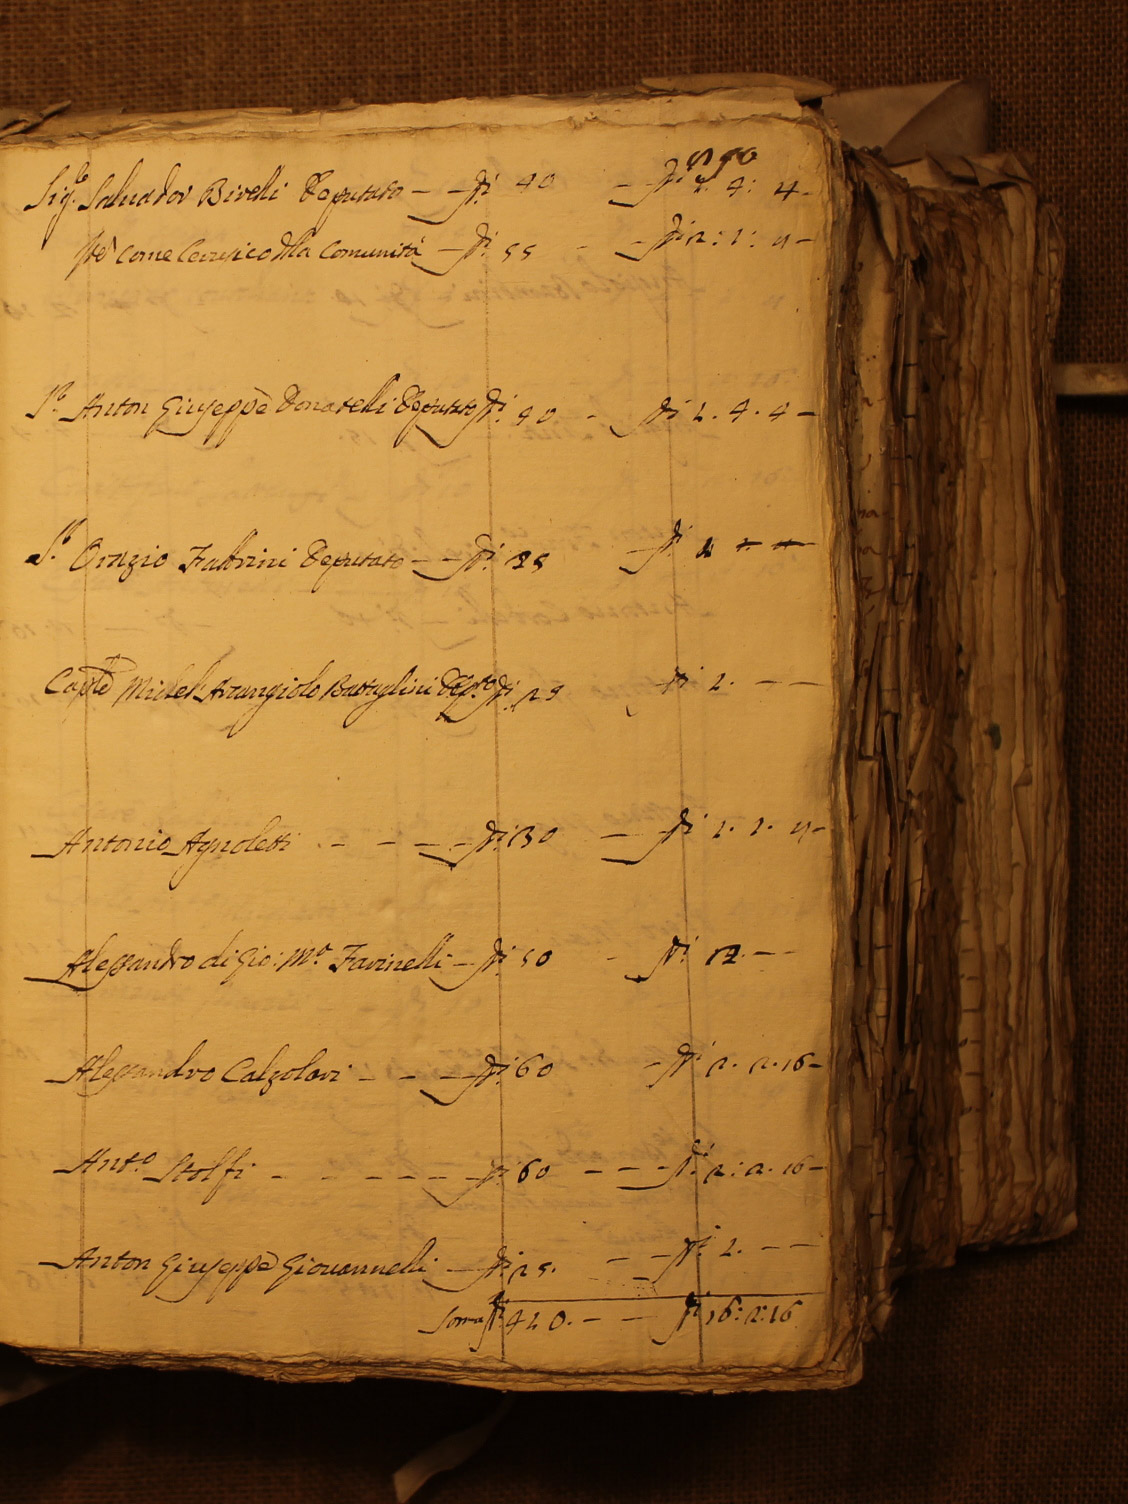 Sig.re Salvador Birelli Deputato — fi: 40 — fi: 1: 4: 4 —
Pel come Cerusico della Comunità — fi: 55 — fi: 2: 1: 4 —
S.r Anton Giuseppe Donatelli Deputato fi: 40 — fi 1. 4. 4 —
S.r Orazio Fabrini Deputato — fi: 25 fi: 1 — —
Cap.no Michel Arcangiolo Battaglini Dep.to fi: 25 fi 1. — —
Antonio Agnoletti — fi: 30 — fi 1. 1. 4 —
Alessandro di Gio: M.a Farinelli — fi: 50 — fi: 2. — —
Alessandro Calzolari — fi: 60 — fi: 2. 2. 16 —
Ant.o Stolfi — fi: 60 — fi: 2: 2. 16 —
Anton Giuseppe Giovannelli — fi: 25. — fi: 1. — —
Soma fi: 410. — — fi: 16: 2: 16